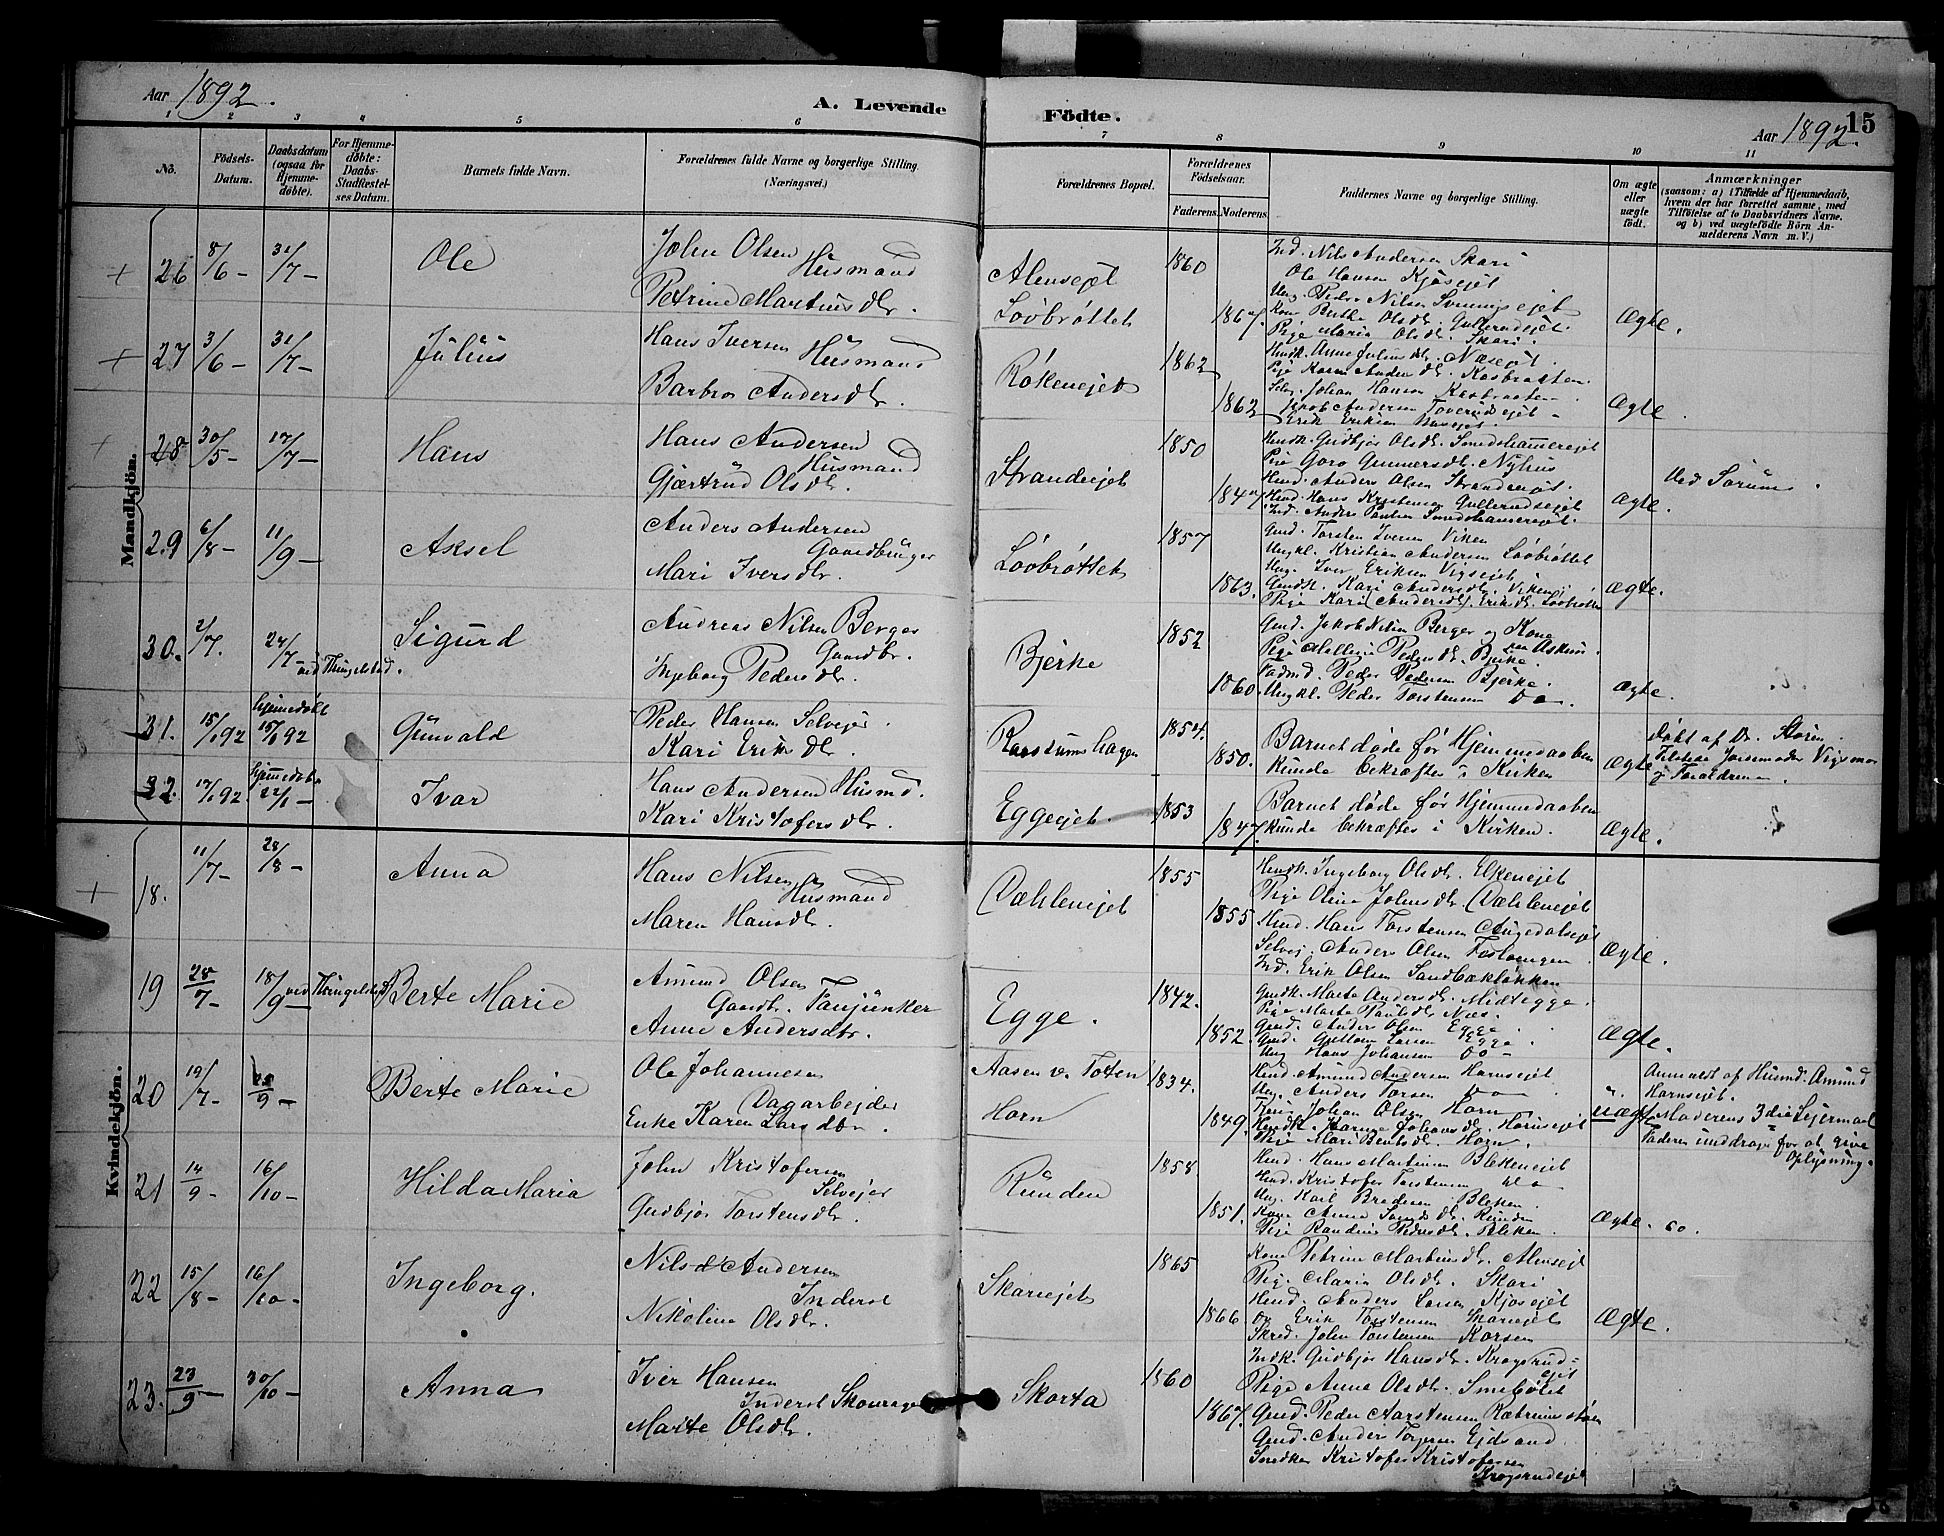 Aar 1892.
A. Levende
Fødte.
Aar 1892.
15
1 2 3 4 5 6 7 8 9 10 11
No.
Födsels-
Datum.
Daabsdatum
(ogsaa for
Hjemme-
döbte).
For Hjemme-
döbte:
Daabs-
Stadfæstel-
ses Datum.
Barnets fulde Navn.
Forældrenes fulde Navne og borgerlige Stilling.
(Næringsvei.)
Forældrenes Bopæl.
Forældrenes
Födselsaar.
Faderens. Moderens.
Faddernes Navne og borgerlige Stilling.
Om ægte
eller
uægte
födt.
Anmærkninger
(saasom: a) i Tilfælde af Hjemmedaab,
hvem der har forrettet samme, med
Tilföielse af to Daabsvidners Navne.
og b) ved uægtefödte Börn An-
melderens Navn m. V.)
Mandkjön.
+ 26 8/6 - 31/7 - Ole
John Olsen
Husmand
Petrine Martinsdtr.
Alensejet
Løvbrøttet
1860
1867.
Ind. Nils Andersen Skari
Ole Hansen Kjøsejet
Ung. Peder Nilsen
Kone Olsdtr. Gullerudsejet.
Pige Maria Olsdtr. Skari.
Ægte.
+ 27 3/6 - 31/7 - Julius
Hans Iversen
Husmand
Barbro Andersdtr.
Røkenejet
1862
1862
Selv. Johan Hansen
Jakob Andersen
Erik Eriksen
Ægte.
+ 28 30/5 - 17/7 - Hans
Hans Andersen
Husmand
Gjærtrud Olsdtr.
Strandejet
1850
1847
Husk. Gudbjør Olsdtr. Smedshamerejet
Pige Goro Gunnersdtr. Nyhus
Husd. Anders Olsen Strandejet.
Husd. Hans Kristensen Gullerudsejet
Ind. Anders Paulsen Smedshamerejet.
Ægte.
Ved Sørum.
29 6/8 - 11/9 - Aksel
Anders Andersen
Gaardbruger
Mari Iversdtr.
Løvbrøttet
1857
1863.
Gmd. Torsten Iversen Viken
Ungkl. Kristian Andersen Løvbrøttet
Ung. Iver Eriksen Vigsejet
Gmdk. Kari Andersdtr. Viken
Pige Kari (Andersdtr.) Eriksdtr. Løvbrøtten
Ægte.
30. 2/7. 24/7 - ved Thingelstad. Sigurd
Andreas Nilsen Berger
Gaardbr.
Ingeborg Pedersdtr.
Bjerke
1852
1860
Gmd. Jakob Nilsen Berger og Kone
Pige Pedersdtr. Bjerke.
Peder Pedersen Bjerke.
Ungkl. Peder Torstensen Do.
Ægte.
31. 15/1 92 hjemmedøbt 15/1 92 Gunvald
Peder Hansen Selvejer.
Kari Eriksdtr.
1854.
1850.
Barnet døde før Hjemmedaaben
kunde bekræftes i Kirken
Ægte
døbt af Dr. Støren.
Tilstede Jordemoder
og Forældrene.
32. 17/1 92. hjemmedøbt 22/1 - Ivar
Hans Andersen Husmd.
Kari Kristofersdtr.
Eggeejet.
1853
1847.
Barnet døde før Hjemmedaaben
kunde bekræftes i Kirken.
Ægte.
Kvindekjön.
+ 18. 11/7 - 28/8 - Anna
Hans Nilsen
Husmand
Maren Hansdtr.
Væhlenejet
1855
1855
Husk. Ingeborg Olsdtr. Elkenejet
Pige Oline Johnsdtr. Væhlenejet
Husd. Hans Torstensen Augedalsejet
Selvej. Anders Olsen
Ind. Erik Olsen Sandbækløkken
Ægte.
19 28/7 - 18/9 - ved Thingelstad Berte Marie
Amund Olsen
Gaardbr. Fanjunker
Anne Andersdtr.
Egge.
1842.
1852.
Gmdk. Marte Andersdtr. Midtegge.
Pige Marte Paulsdtr. Næs.
Gmd. Anders Olsen Egge.
Gmd. Guttorm Larsen Egge
Ung Hans Johansen Do -
Ægte.
20 19/7 - 9 - Berte Marie
Ole Johannesen
Dagarbejder
Enke Karen Larsdtr.
Aasen v. Toten
Horn
1834.
1849.
Husd. Amund Andersen Hornsejet.
Ung. Anders Torsen Do
Johan Olsen Horn
Husk. Johansdtr. Hornsejet
Pige Mari Berntsdtr. Horn.
uægte
Anmeldt af Husmd. Amund
Hornsejet.
Moderens 3die Lejermaal
Faderen unddrages for at give
Oplysning.
21 14/9 - 16/10 - Hilda Maria
John Kristofersen
Selvejer
Gudbjør Torstensdtr.
Runden
1858.
1851.
Husd. Hans Martinsen Blekenejet
Husd. Kristofer Torstensen do
Ung. Karl Bredesen Bleken.
Kone Anne Runden
Pige Randine Pedersdtr. Bleken.
Ægte. co.
22 15/8 - 16/10 - Ingeborg.
Nils Andersen
Inderst
Nikoline Olsdtr.
Skariejet
1865
1866
Kone Petrine Martinsdtr. Alensejet
Pige Maria Olsdtr. Skari
Husd. Anders Larsen Kjøsejet
Do Erik Torstensen Skariejet
Skred. John Torstensen Korsen
Ægte.
23. 23/9 - 30/10 - Anna
Iver Hansen
Inderst Skomager
Marte Olsdtr.
Skorta
1860
1867.
Indk. Gudbjør Hansdtr. Krogsrud-
ejet
Pige Anne Olsdtr. Smebølet
Gmd. Peder Aarstensen
Gmd. Anders Torgersen Ejdsand
Smedken Kristofer Kristofersen
Krogsrudejet